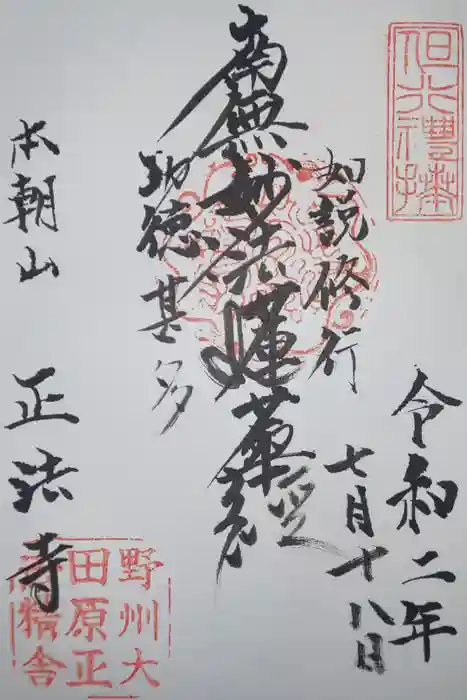 令和二年
七月十八日
如説修行
南無妙法蓮華経
功徳甚多
本朝山
正法寺
野州大
田原正
法精舎